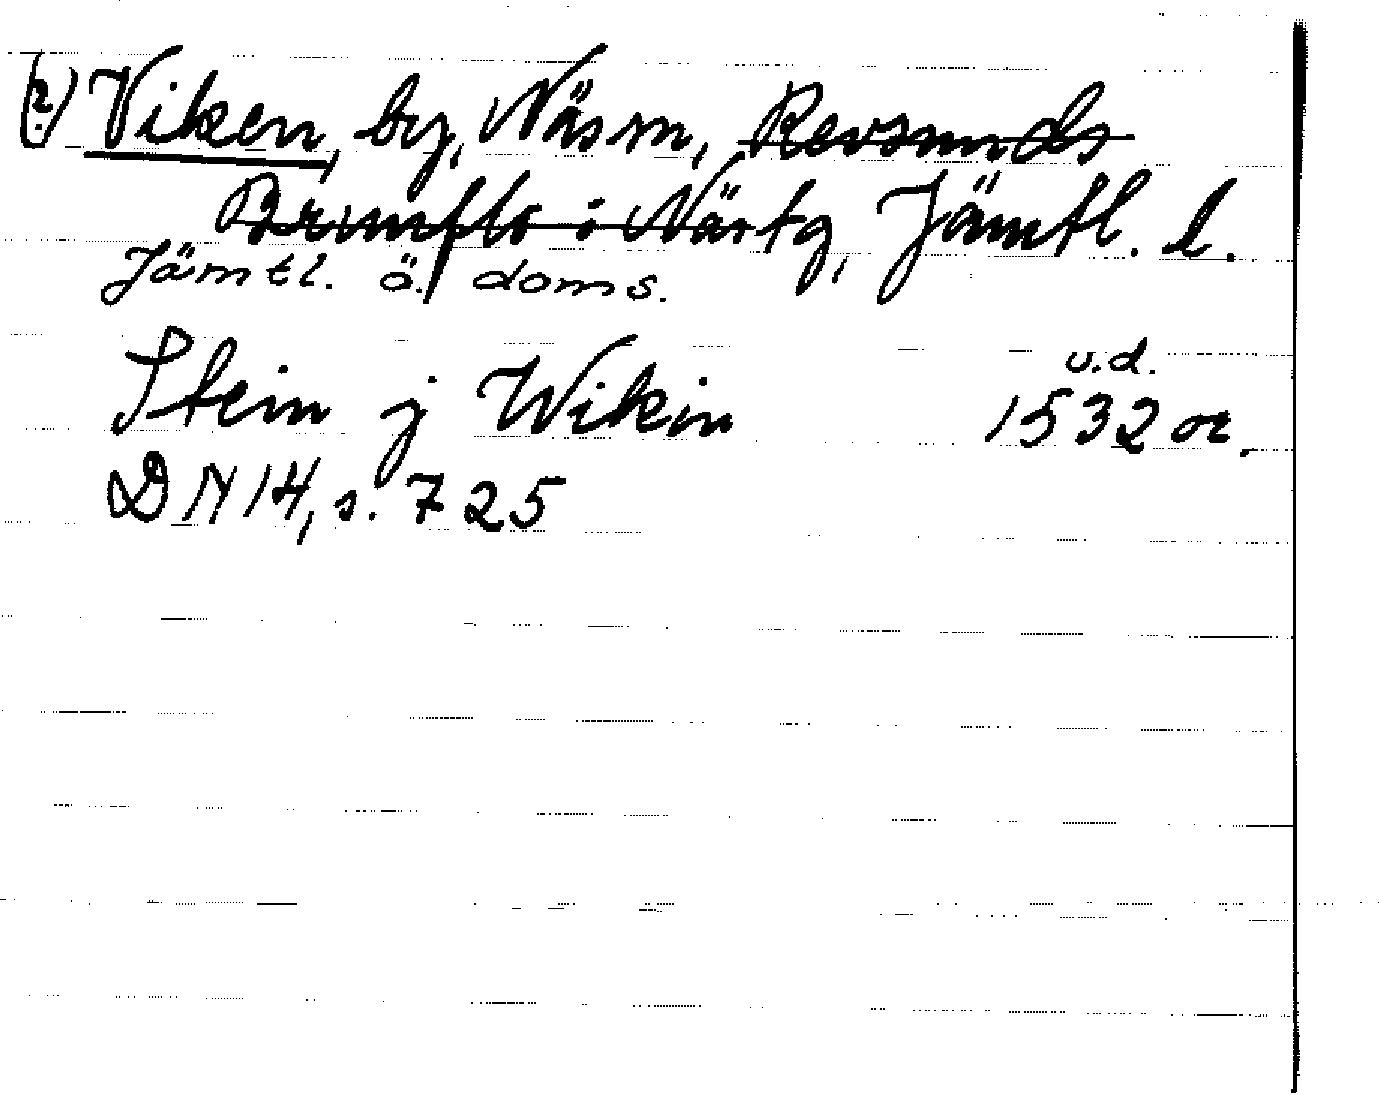 (?) Viken, by, Näs sn, Revsunds
Brunflo i Närtg, Jämtl. l.
Jämtl. ö. doms.
u.d.
Stein j Wikin 1532 or.
DN 14, s. 725